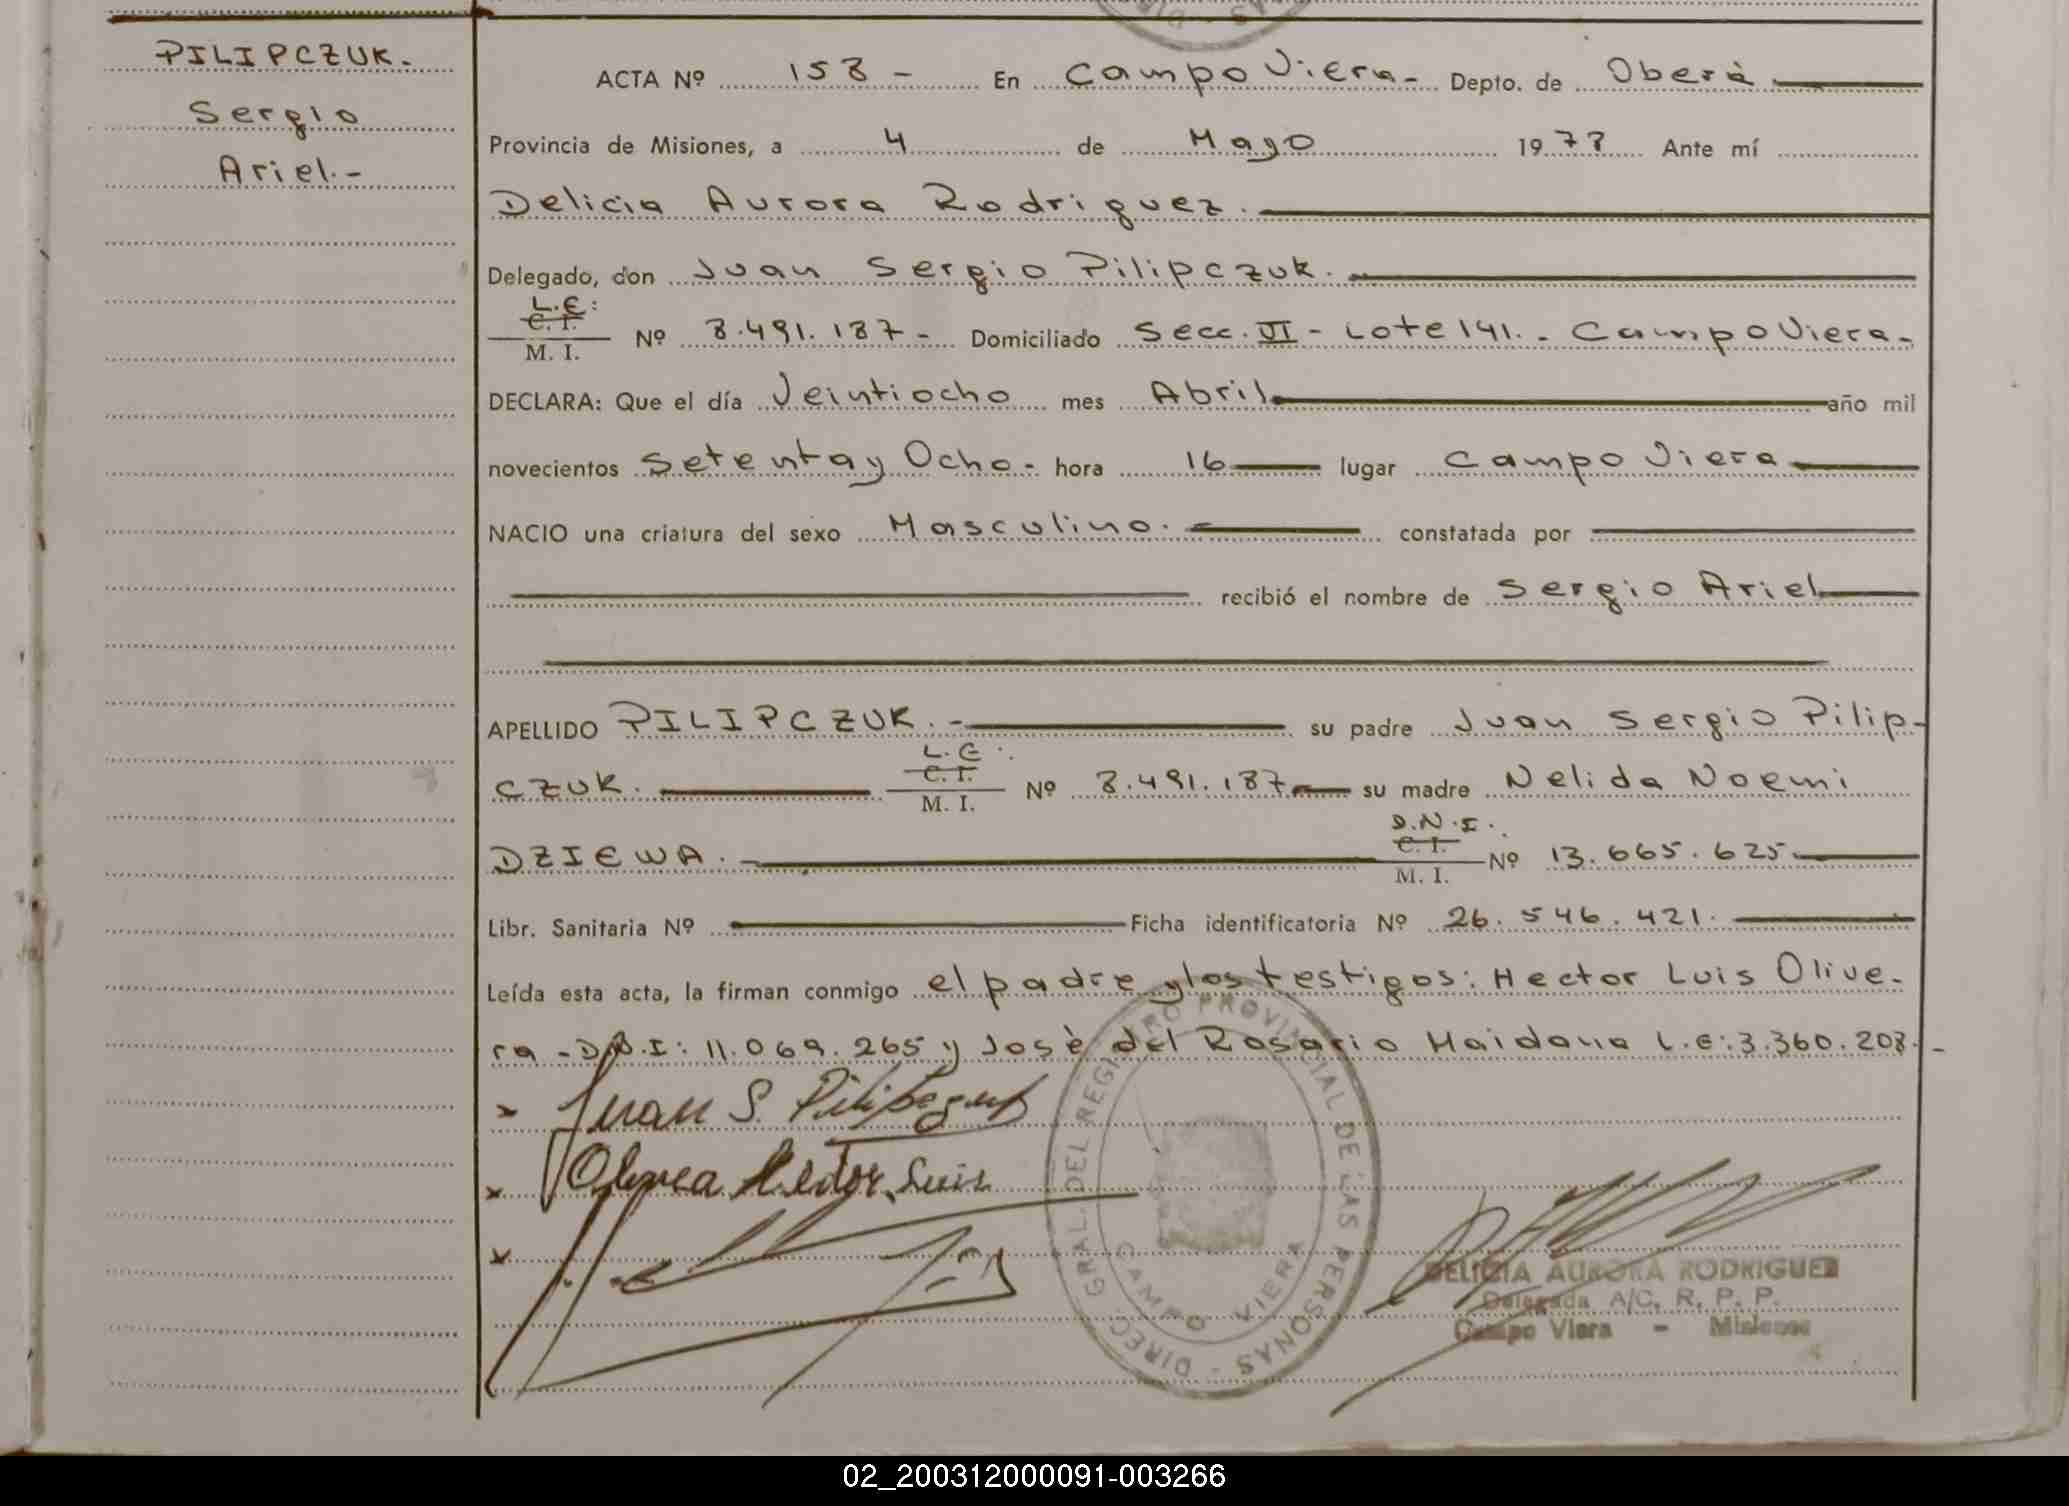 PILIPCZUK.
Sergio
Ariel.-
ACTA Nº 158 - En Campo Viera - Depto. de Oberà
Provincia de Misiones, a 4 de Mayo 1978 Ante mí
Delicia Aurora Rodriguez.
Delegado, don Juan Sergio Pilipczuk.
L.E:
C. I.
M. I. Nº 8.491.187 - Domiciliado Secc. VI - Lote 141. - Campo Viera -
DECLARA: Que el día Veintiocho mes Abril año mil
novecientos Setenta y Ocho - hora 16 lugar Campo Viera
NACIO una criatura del sexo Masculino. constatada por
recibió el nombre de Sergio Ariel
APELLIDO PILIPCZUK. - su padre Juan Sergio Pilip-
L.E.
C. I.
CZUK. M. I. Nº 8.491.187 su madre Nelida Noemi
D.N.I.
C. I.
DZIEWA. - M. I. Nº 13.665.625
Libr. Sanitaria Nº Ficha identificatoria Nº 26.546.421.
Leída esta acta, la firman conmigo el padre y los testigos: Hector Luis Olive-
ra - D.N.I: 11.069.265 y Josè del Rosario Maidana L.E: 3.360.208. -
x Juan S. Pilipczuk
x Olivera Hector Luis
x
DIREC. GRAL. DEL REGISTRO PROVINCIAL DE LAS PERSONAS -
CAMPO VIERA
DELICIA AURORA RODRIGUEZ
Delegada A/C, R. P. P.
Campo Viera - Misiones
02_200312000091-003266